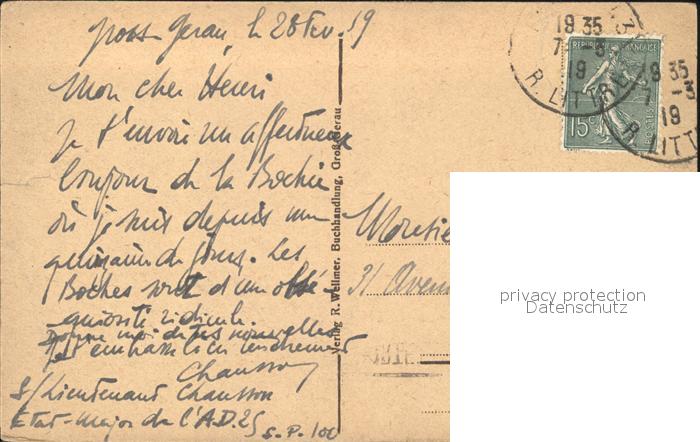 Gross Gerau, le 28 Fev. 19
Mon cher Henri
Je t'envoie un affectueux
bonjour de la Bochie
où je suis depuis une
quinzaine de jours. Les
Boches sont d'une obsé-
quiosité ridicule.
Donne moi de tes nouvelles
Je t'embrasse bien
Chausson
S/Lieutenant Chausson
Etat-Major de l'A.D. 25
S.P. 100
Verlag R. Wellmer, Buchhandlung, Großgerau
19 35
7 -3
19
R. LITTRE
REPUBLIQUE FRANÇAISE
15c
POSTES
19 35
7 -3
19
R. LITT
31 Aven
privacy protection
Datenschutz